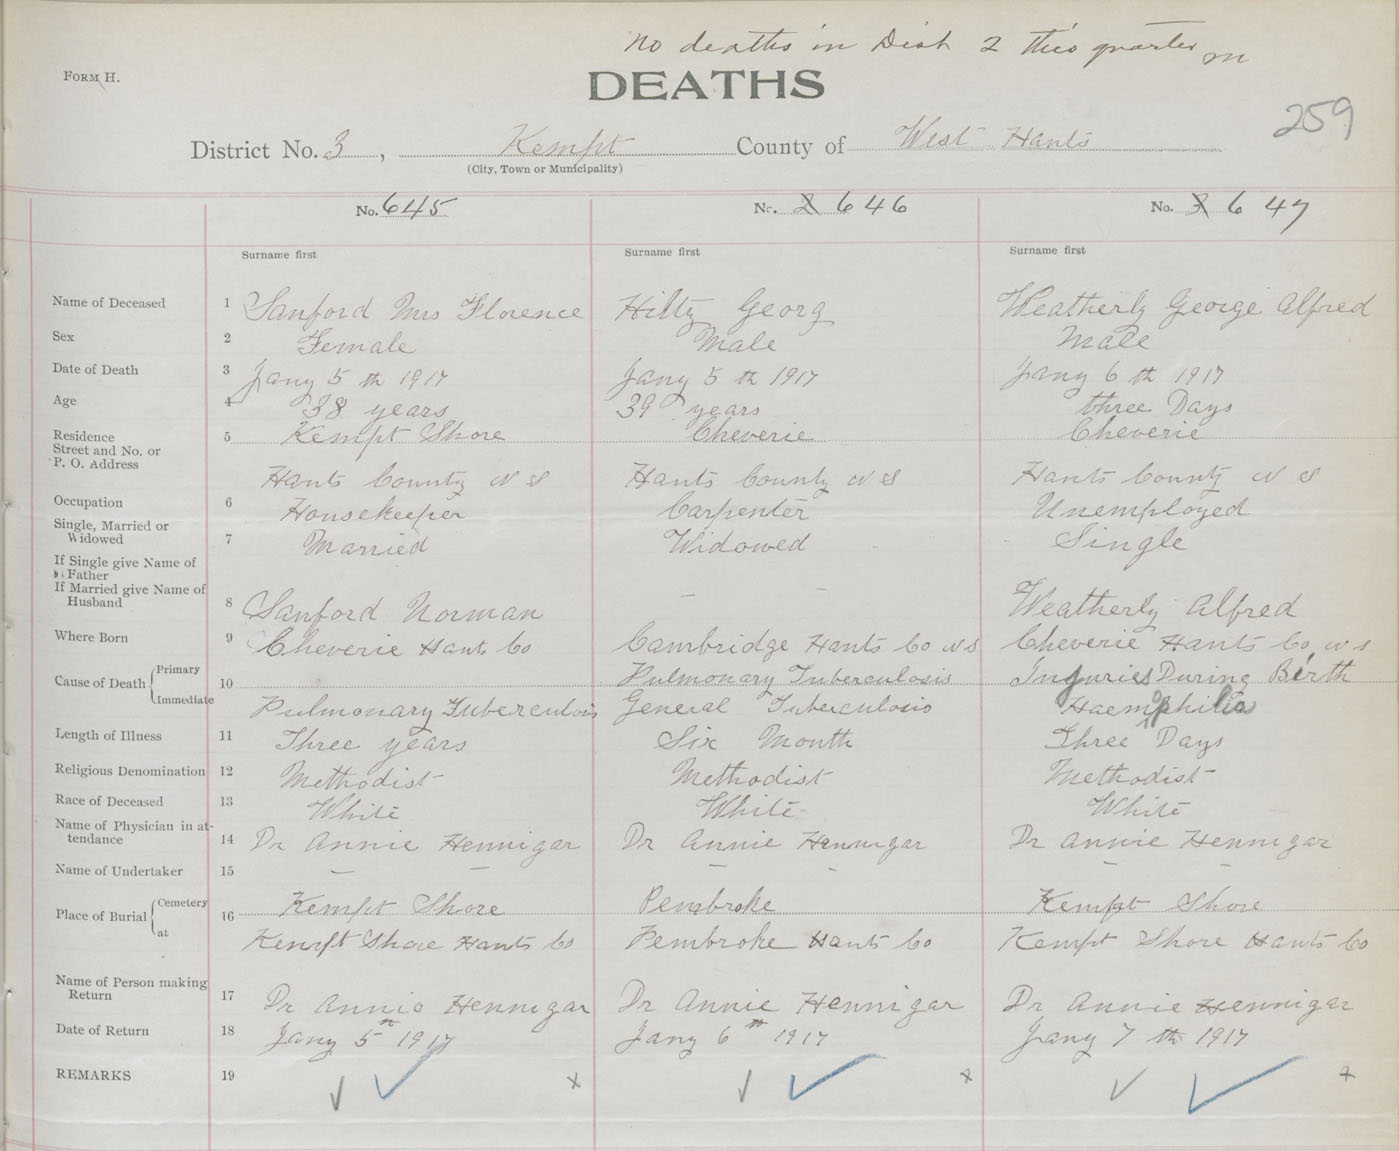 No deaths in Dist 2 this quarter
Form H.
DEATHS
259
District No. 3, Kempt County of West Hants
(City, Town or Municipality)
No. 645 No. 2 646 No. 3 647
Surname first Surname first Surname first
Name of Deceased 1 Sanford Mrs Florence Hilty Georg Weatherly George Alfred
Sex 2 Female Male Male
Date of Death 3 Jany 5 th 1917 Jany 5 th 1917 Jany 6 th 1917
Age 4 38 years 39 years three Days
Residence 5 Kempt Shore Cheverie Cheverie
Street and No. or
P. O. Address
Hants County N S Hants County N S Hants County N S
Occupation 6 Housekeeper Carpenter Unemployed
Single, Married or
Widowed 7 Married Widowed Single
If Single give Name of
Father
If Married give Name of
Husband 8 Sanford Norman – – Weatherly Alfred
Where Born 9 Cheverie Hants Co Cambridge Hants Co N S Cheverie Hants Co N S
Cause of Death Primary 10 Pulmonary Tuberculosis Injuries During Birth
Immediate Pulmonary Tuberculosis General Tuberculosis Haemophilia
Length of Illness 11 Three years Six Month Three Days
Religious Denomination 12 Methodist Methodist Methodist
Race of Deceased 13 White White White
Name of Physician in at-
tendance 14 Dr Annie Hennigar Dr Annie Hennigar Dr Annie Hennigar
Name of Undertaker 15 – – – – – –
Place of Burial Cemetery 16 Kempt Shore Pembroke Kempt Shore
at Kempt Shore Hants Co Pembroke Hants Co Kempt Shore Hants Co
Name of Person making
Return 17 Dr Annie Hennigar Dr Annie Hennigar Dr Annie Hennigar
Date of Return 18 Jany 5th 1917 Jany 6th 1917 Jany 7 th 1917
REMARKS 19 ✓ ✓ x ✓ ✓ x ✓ ✓ x